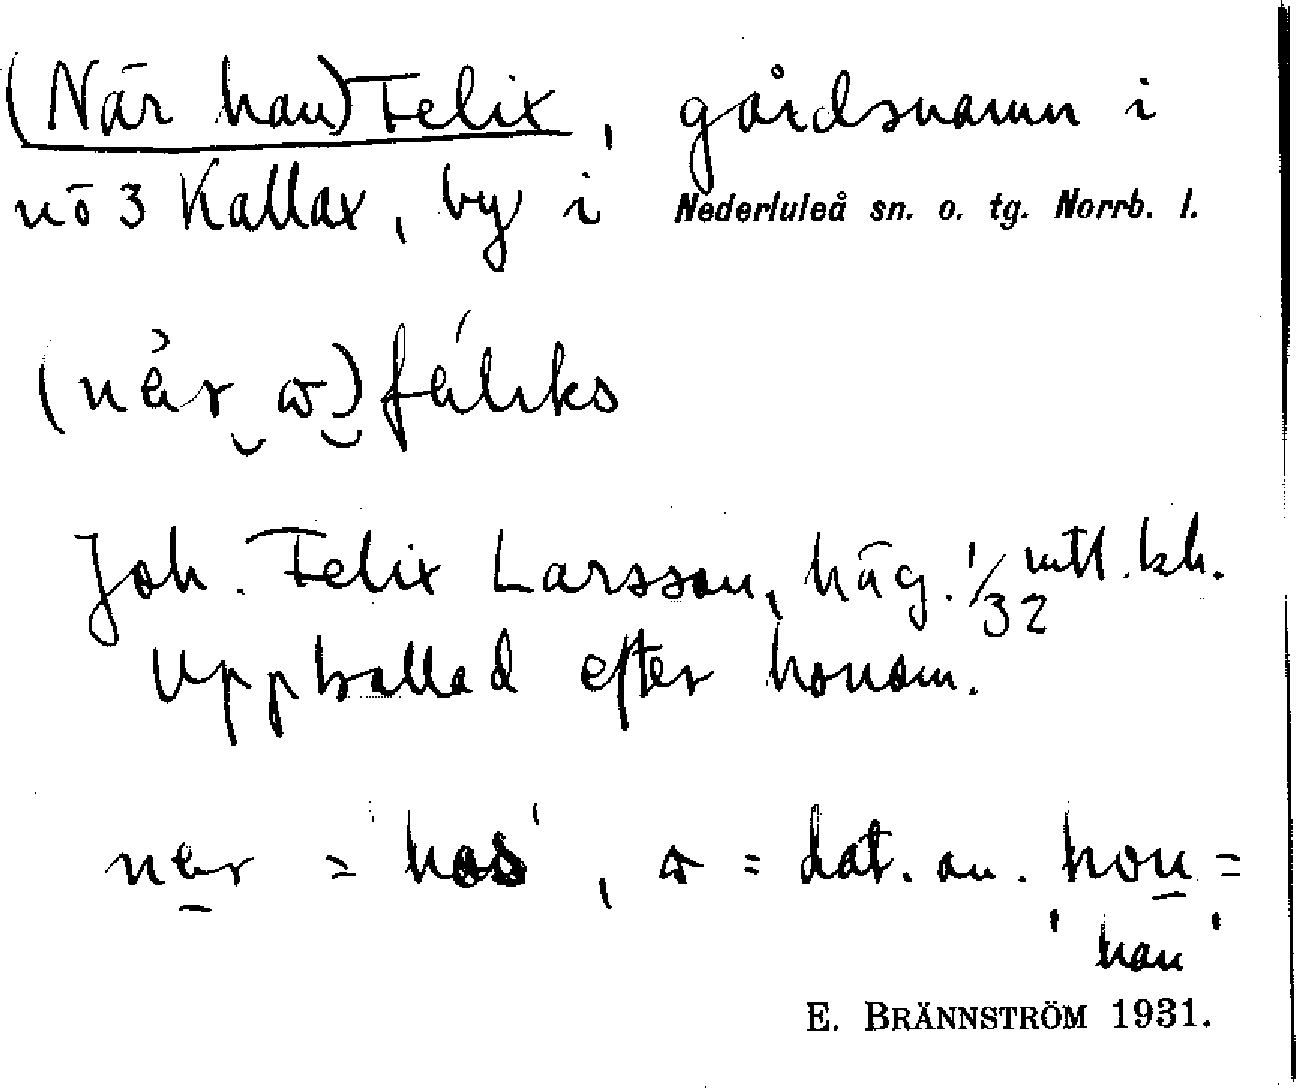 (När han) Felix, gårdsnamn i
nö 3 Kallax, by i Nederluleå sn. o. tg. Norrb. l.
Joh. Felix Larsson, häg. 1/32 mtl. bh.
Uppkallad efter honom.
= 'hos', = dat. av.
'han'
E. BRÄNNSTRÖM 1931.